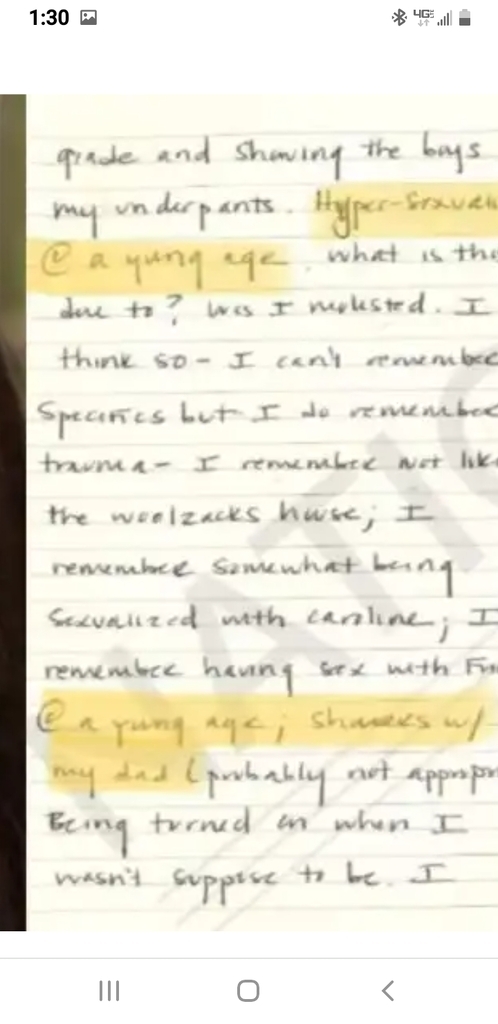 1:30
4GE
grade and showing the boys
my underpants. Hyper-sexual
@ a yung age. what is the
due to? Was I molested. I
think so - I can't remember
specifics but I do remember
trauma - I remember not like
the woolzacks house; I
remember somewhat being
sexualized with caroline; I
remember having sex with
@ a yung age; showers w/
my dad (probably not approp
Being turned on when I
wasn't suppose to be. I
NATIO